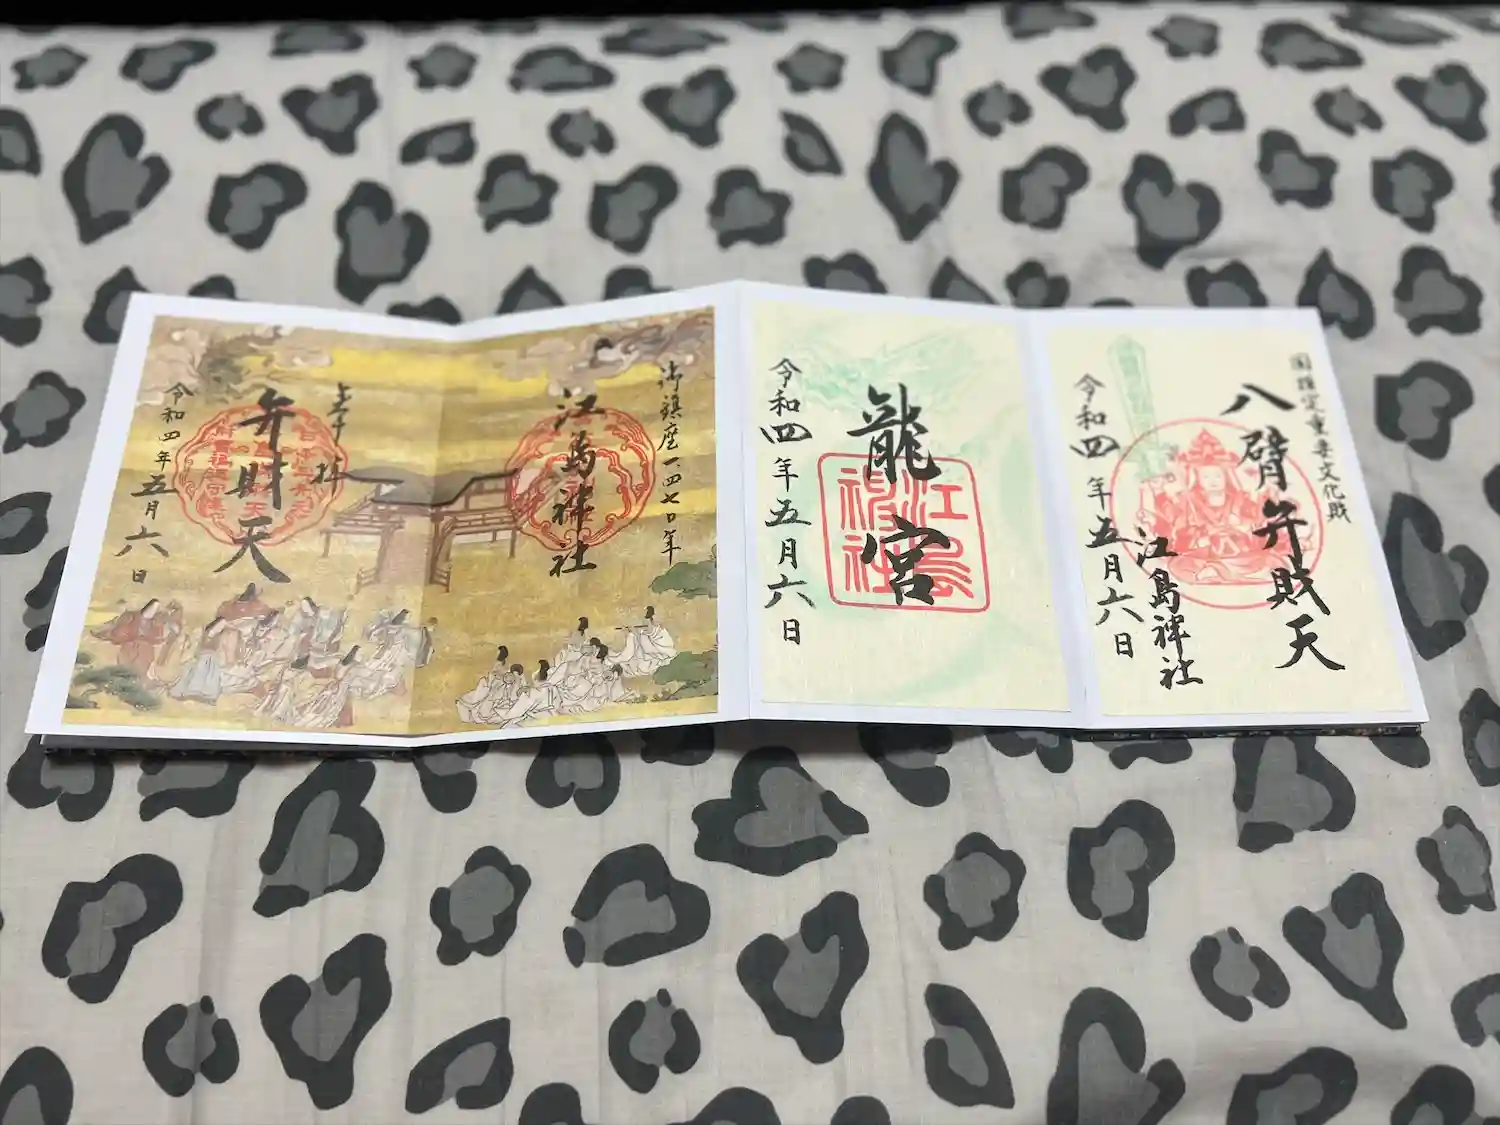 国指定重要文化財
八臂弁財天
江島神社
令和四年五月六日
龍宮
江島神社
令和四年五月六日
御鎮座一四七〇年
江島神社
奉拝
弁財天
令和四年五月六日